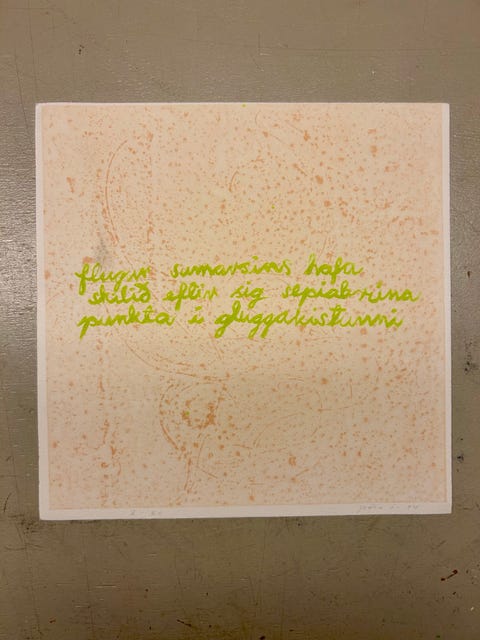 flugur sumarsins hafa
skilið eftir sig sepiabrúna
punkta í gluggakistunni